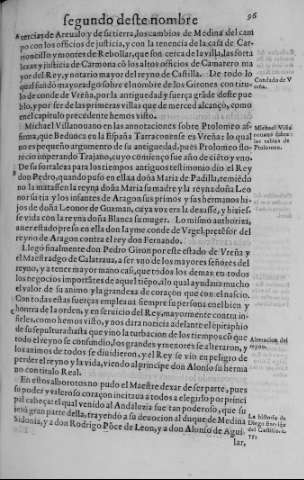 segundo deste nombre
96
tercias de Areualo y de su tierra, los cambios de Medina del cam
po con los officios de justicia, y con la tenencia de la casa de Car-
rioncillo y montes de Rebollar, que son cerca de la villa, las forta
lezas y justicia de Carmona cõ los altos officios de Camarero ma
yor del Rey, y notario mayor del reyno de Castilla. De todo lo
qual fundó mayoradgo sobre el nombre de los Girones con titu-
lo de conde de Vreña, por la antiguedad y fuerça grãde deste pue
blo, y por ser de las primeras villas que de merced alcançó, como
en el capitulo precedente hemos visto.
Condado de V
reña.
Michael Villanouano en las annotaciones sobre Ptolomeo af-
firma, que Beduncs en la España Tarraconense es Vreña: lo qual
no es pequeño argumento de su antiguedad, pues Ptolomeo flo-
recio imperando Trajano, cuyo comienço fue año de ciẽto y vno.
Michael Villa
nouano sobre
las tablas de
Ptolomeo.
De su fortaleza para los tiempos antiguos es testimonio dio el Rey
don Pedro, quando puso en ella a doña Maria de Padilla, temiẽdo
no la matassen la reyna doña Maria su madre y la reyna doña Leo
nor su tia y los infantes de Aragon sus primos y sus hermanos hi-
jos de doña Leonor de Guzman, cuya voz era la dexasse, y hizies-
se vida con la reyna doña Blanca su muger. Lo mismo authoriza,
auer estado preso en ella don Iayme conde de Vrgel, pretẽsor del
reyno de Aragon contra el rey don Fernando.
Luego finalmente don Pedro Giron por este estado de Vreña y
el Maestradgo de Calatraua, a ser vno de los mayores señores del
reyno, y a tener mayor mano casi, que todos los demas en todos
los negocios importantes de aquel tiẽpo, a lo qual ayudaua mucho
el valor de su animo y la grandeza de coraçon que con el nascio.
Con todas estas fuerças empleaua siempre su persona en el bien y
honrra de la orden, y en seruicio del Rey, mayormente contra in-
fieles, como hemos visto, y nos dara noticia adelante el epitaphio
de su sepultura: hasta que vino la turbacion de los tiempos cõ que
todo el reyno se confundio, los grandes y menores se alteraron, y
los animos de todos se diuidieron, y el Rey se vio en peligro de
perder el reyno y la vida, viendo al principe don Alonso su herma
no con titulo Real.
Alteracion del
reyno.
En estos alborotos no pudo el Maestre dexar de ser parte, pues
su poder y valeroso coraçon incitaua a todos a elegirlo por princi
pal cabeça: el qual venido al Andaluzia fue tan poderoso, que su
jetó gran parte della, trayendo a su deuocion al duque de Medina
Sidonia, y a don Rodrigo Põce de Leon, y a don Alonso de Agui-
La historia de
Diego Enriq̃z
del Castillo
lar,